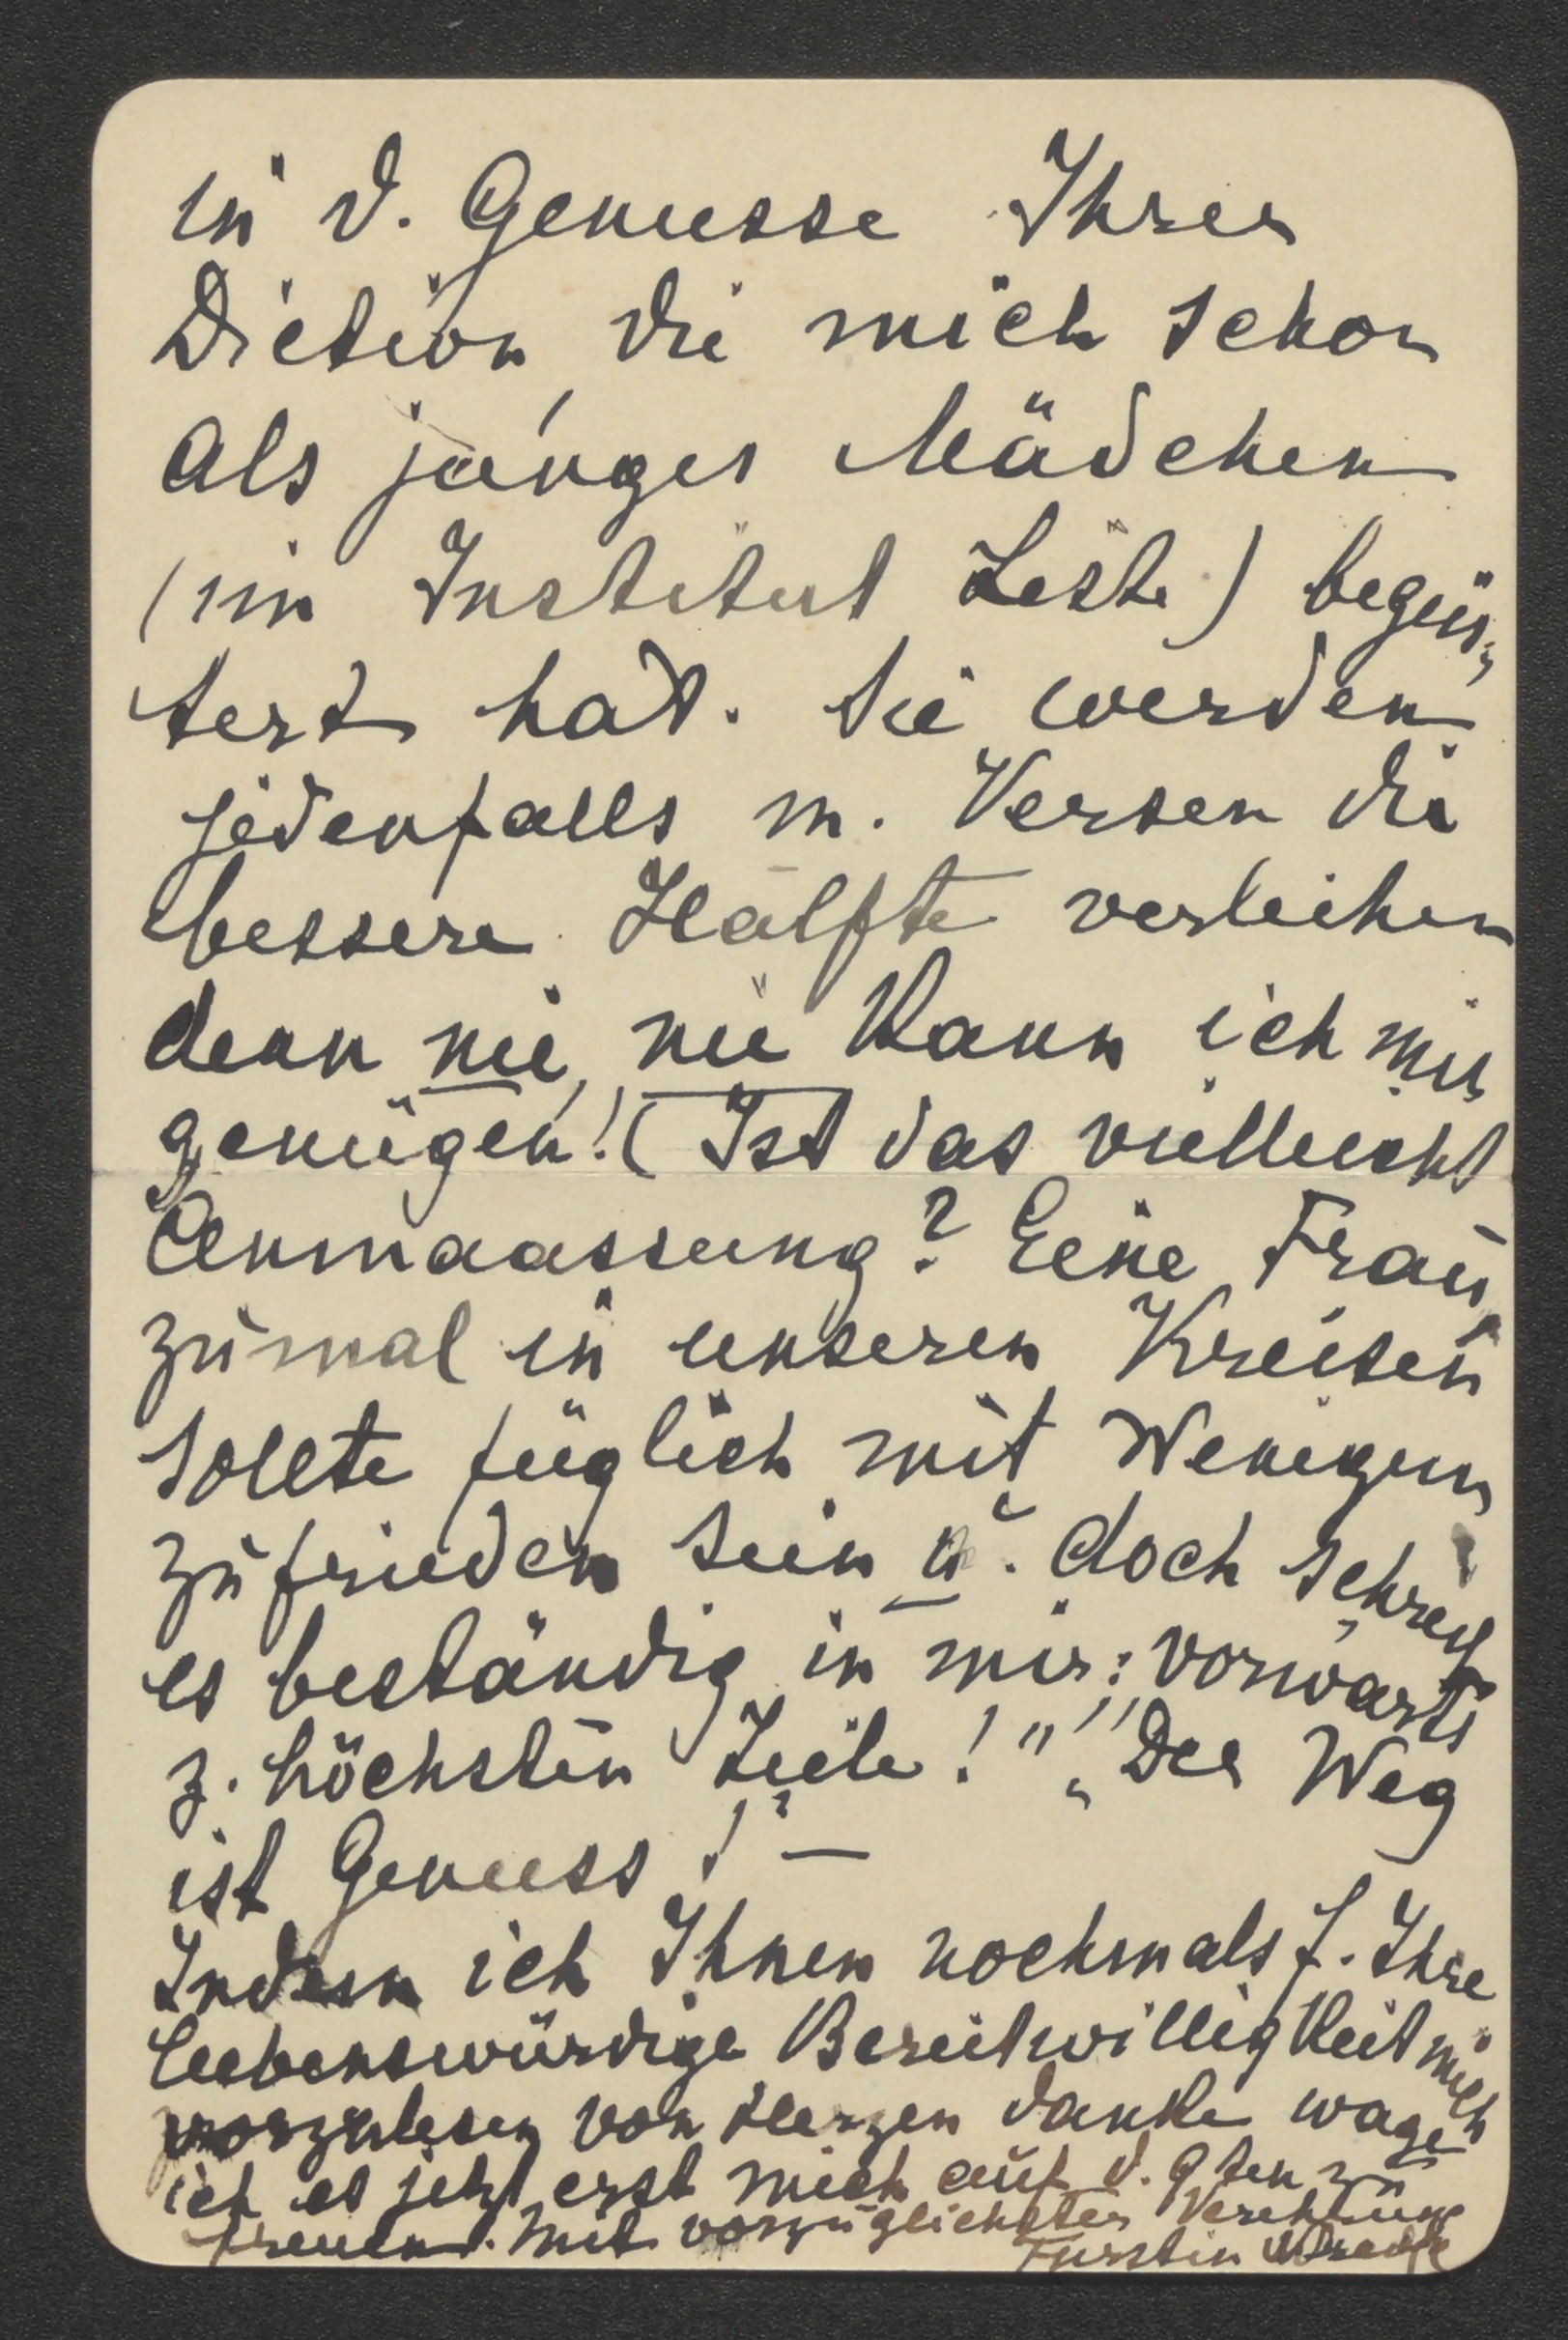 in d. Genusse Ihrer
Diction, die mich schon
als junges Mädchen
(im Institut Leste) begeis-
tert hat. Sie werden
jedenfalls m. Versen die
bessere Hälfte verleihen
denn nie, nie kann ich mir
genügen! (Ist das vielleicht
Anmaassung? Eine Frau,
zumal in unseren Kreisen
sollte füglich mit Wenigem
zufrieden sein u. doch schreit
es beständig in mir: vorwärts
z. höchsten Ziele!" "Der Weg
ist Genuss! —
Indem ich Ihnen nochmals f. Ihre
liebenswürdige Bereitwilligkeit mich
vorzulesen von Herzen danke wage
ich es jetzt erst mich auf d. 9ten zu
freuen. Mit vorzüglichster Verehrung
Fürstin Wrede